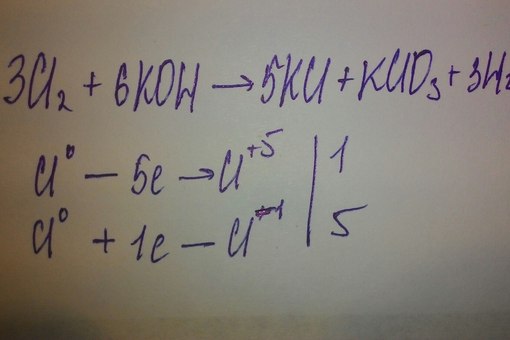 3Cl₂ + 6KOH → 5KCl + KClO₃ + 3H₂
Cl⁰ – 5e → Cl⁺⁵ | 1
Cl⁰ + 1e – Cl⁻¹ | 5